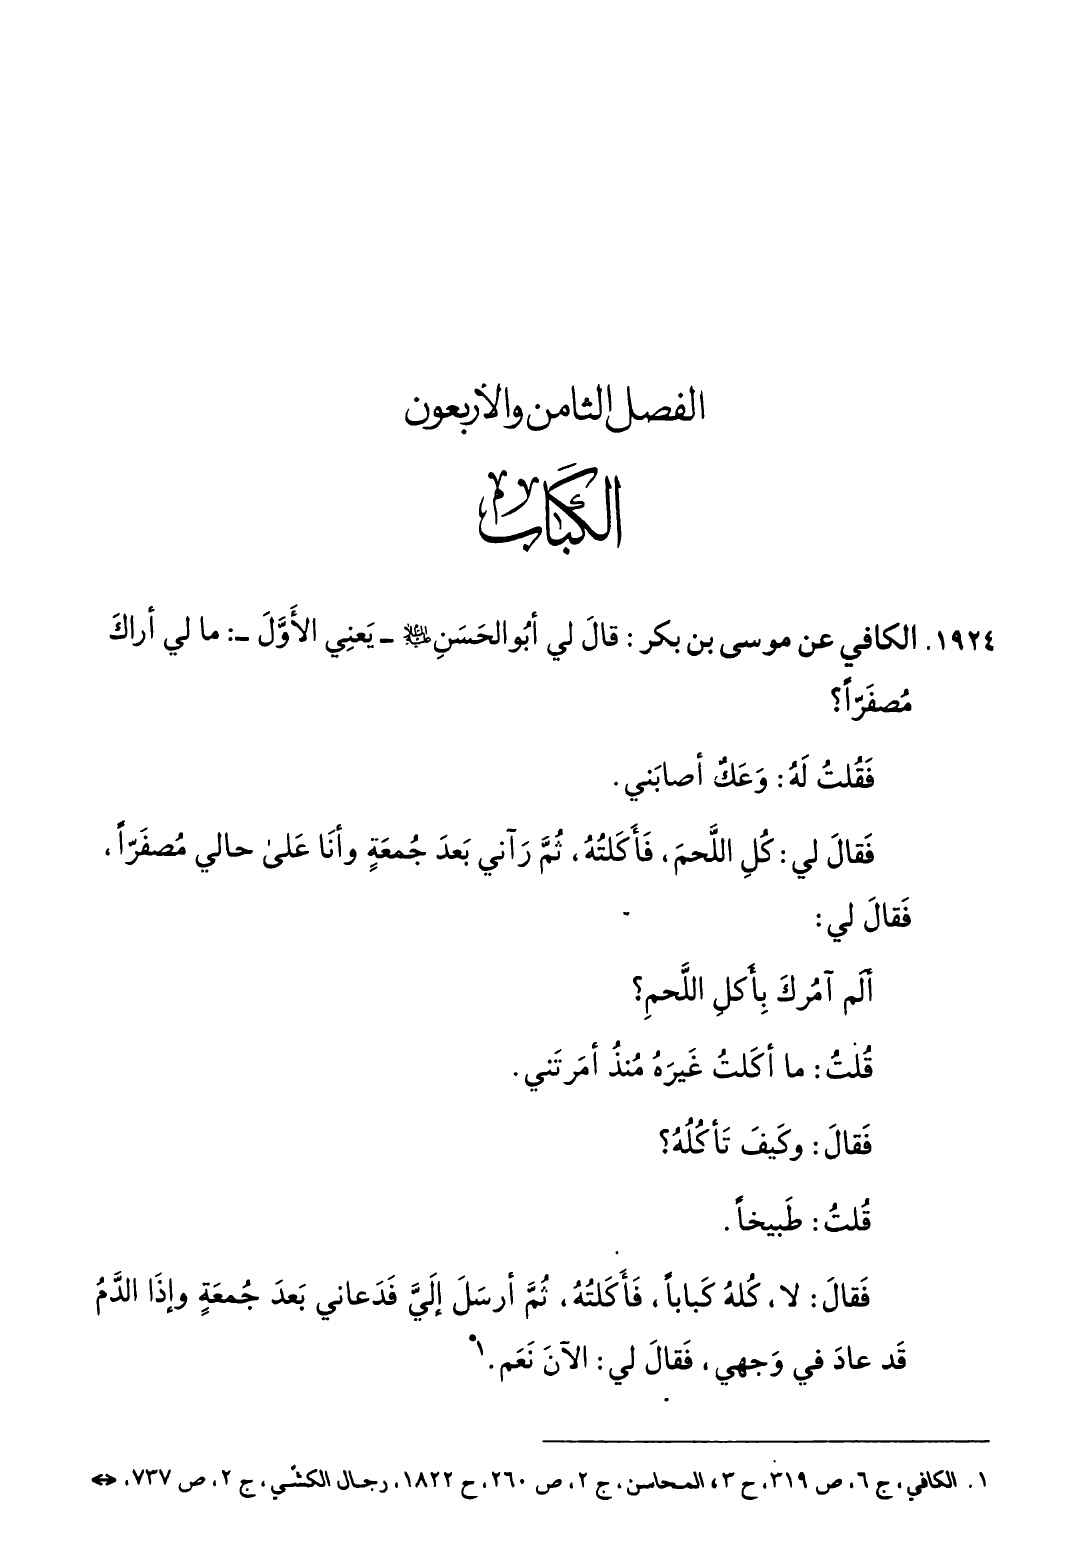 الفصل الثامن والأربعون
الكَباب
١٩٢٤. الكافي عن موسى بن بكر : قالَ لي أبُو الحَسَنِ ـ يَعنِي الأَوَّلَ ـ: ما لي أراكَ
مُصفَرّاً؟
فَقُلتُ لَهُ: وَعَكٌ أصابَني.
فَقالَ لي: كُلِ اللَّحمَ، فَأَكَلتُهُ، ثُمَّ رَآني بَعدَ جُمعَةٍ وأنَا عَلىٰ حالي مُصفَرّاً،
فَقالَ لي:
ألَم آمُركَ بِأَكلِ اللَّحمِ؟
قُلتُ: ما أكَلتُ غَيرَهُ مُنذُ أمَرتَني.
فَقالَ: وكَيفَ تَأكُلُهُ؟
قُلتُ: طَبيخاً.
فَقالَ: لا، كُلهُ كَباباً، فَأَكَلتُهُ، ثُمَّ أرسَلَ إلَيَّ فَدَعاني بَعدَ جُمعَةٍ وإذَا الدَّمُ
قَد عادَ في وَجهي، فَقالَ لي: الآنَ نَعَم.١
١. الكافي، ج ٦، ص ٣١٩، ح ٣، المحاسن، ج ٢، ص ٢٦٠، ح ١٨٢٢، رجال الكشّي، ج ٢، ص ٧٣٧، ⇔